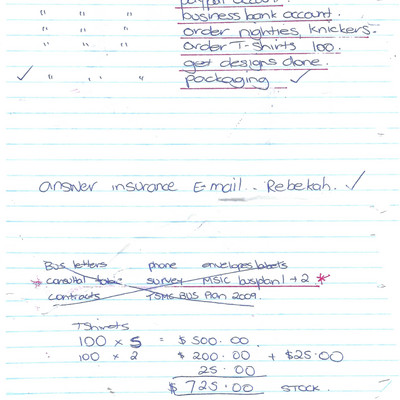 paypal account.
" " " business bank account.
" " " order nighties, knickers.
" " " order T-Shirts 100.
get designs done.
✓ " " " packaging ✓
answer insurance E-mail. Rebekah. ✓
Bus letters phone envelopes labels
* consultal survey MSIC busplan 1 + 2 *
contracts TSMS BUS Plan 2009.
TShirts
100 x 5 = $500.00.
100 x 2 $200.00 + $25.00
25.00
$725.00 STOCK.